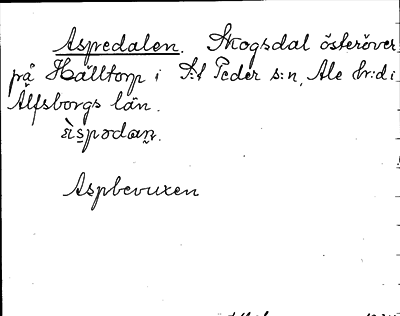 Aspedalen. Skogsdal österöver
på Hälltorp i S:t Peder s:n, Ale hr:d i
Älfsborgs län.
àspədan.
Aspbevuxen